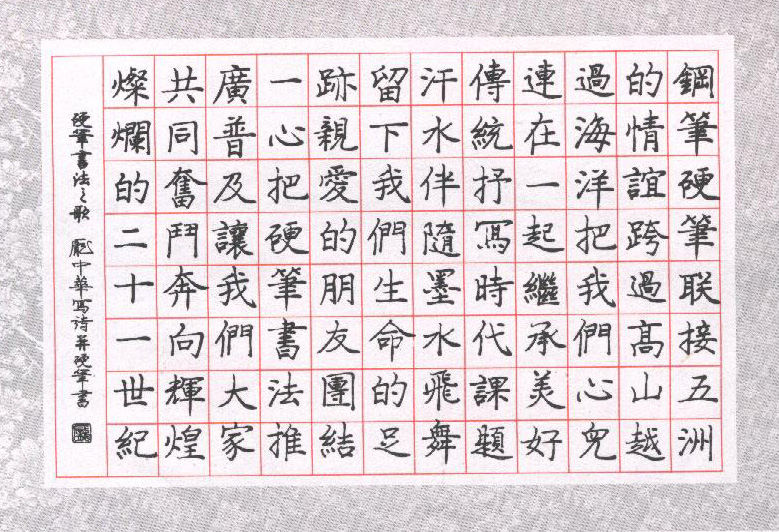 鋼筆硬筆联接五洲
的情誼跨過高山越
過海洋把我們心皃
連在一起繼承美好
傳統抒寫時代課題
汗水伴隨墨水飛舞
留下我們生命的足
跡親愛的朋友團結
一心把硬筆書法推
廣普及讓我們大家
共同奮鬥奔向輝煌
燦爛的二十一世紀
硬筆書法之歌 龐中華写诗并硬筆書